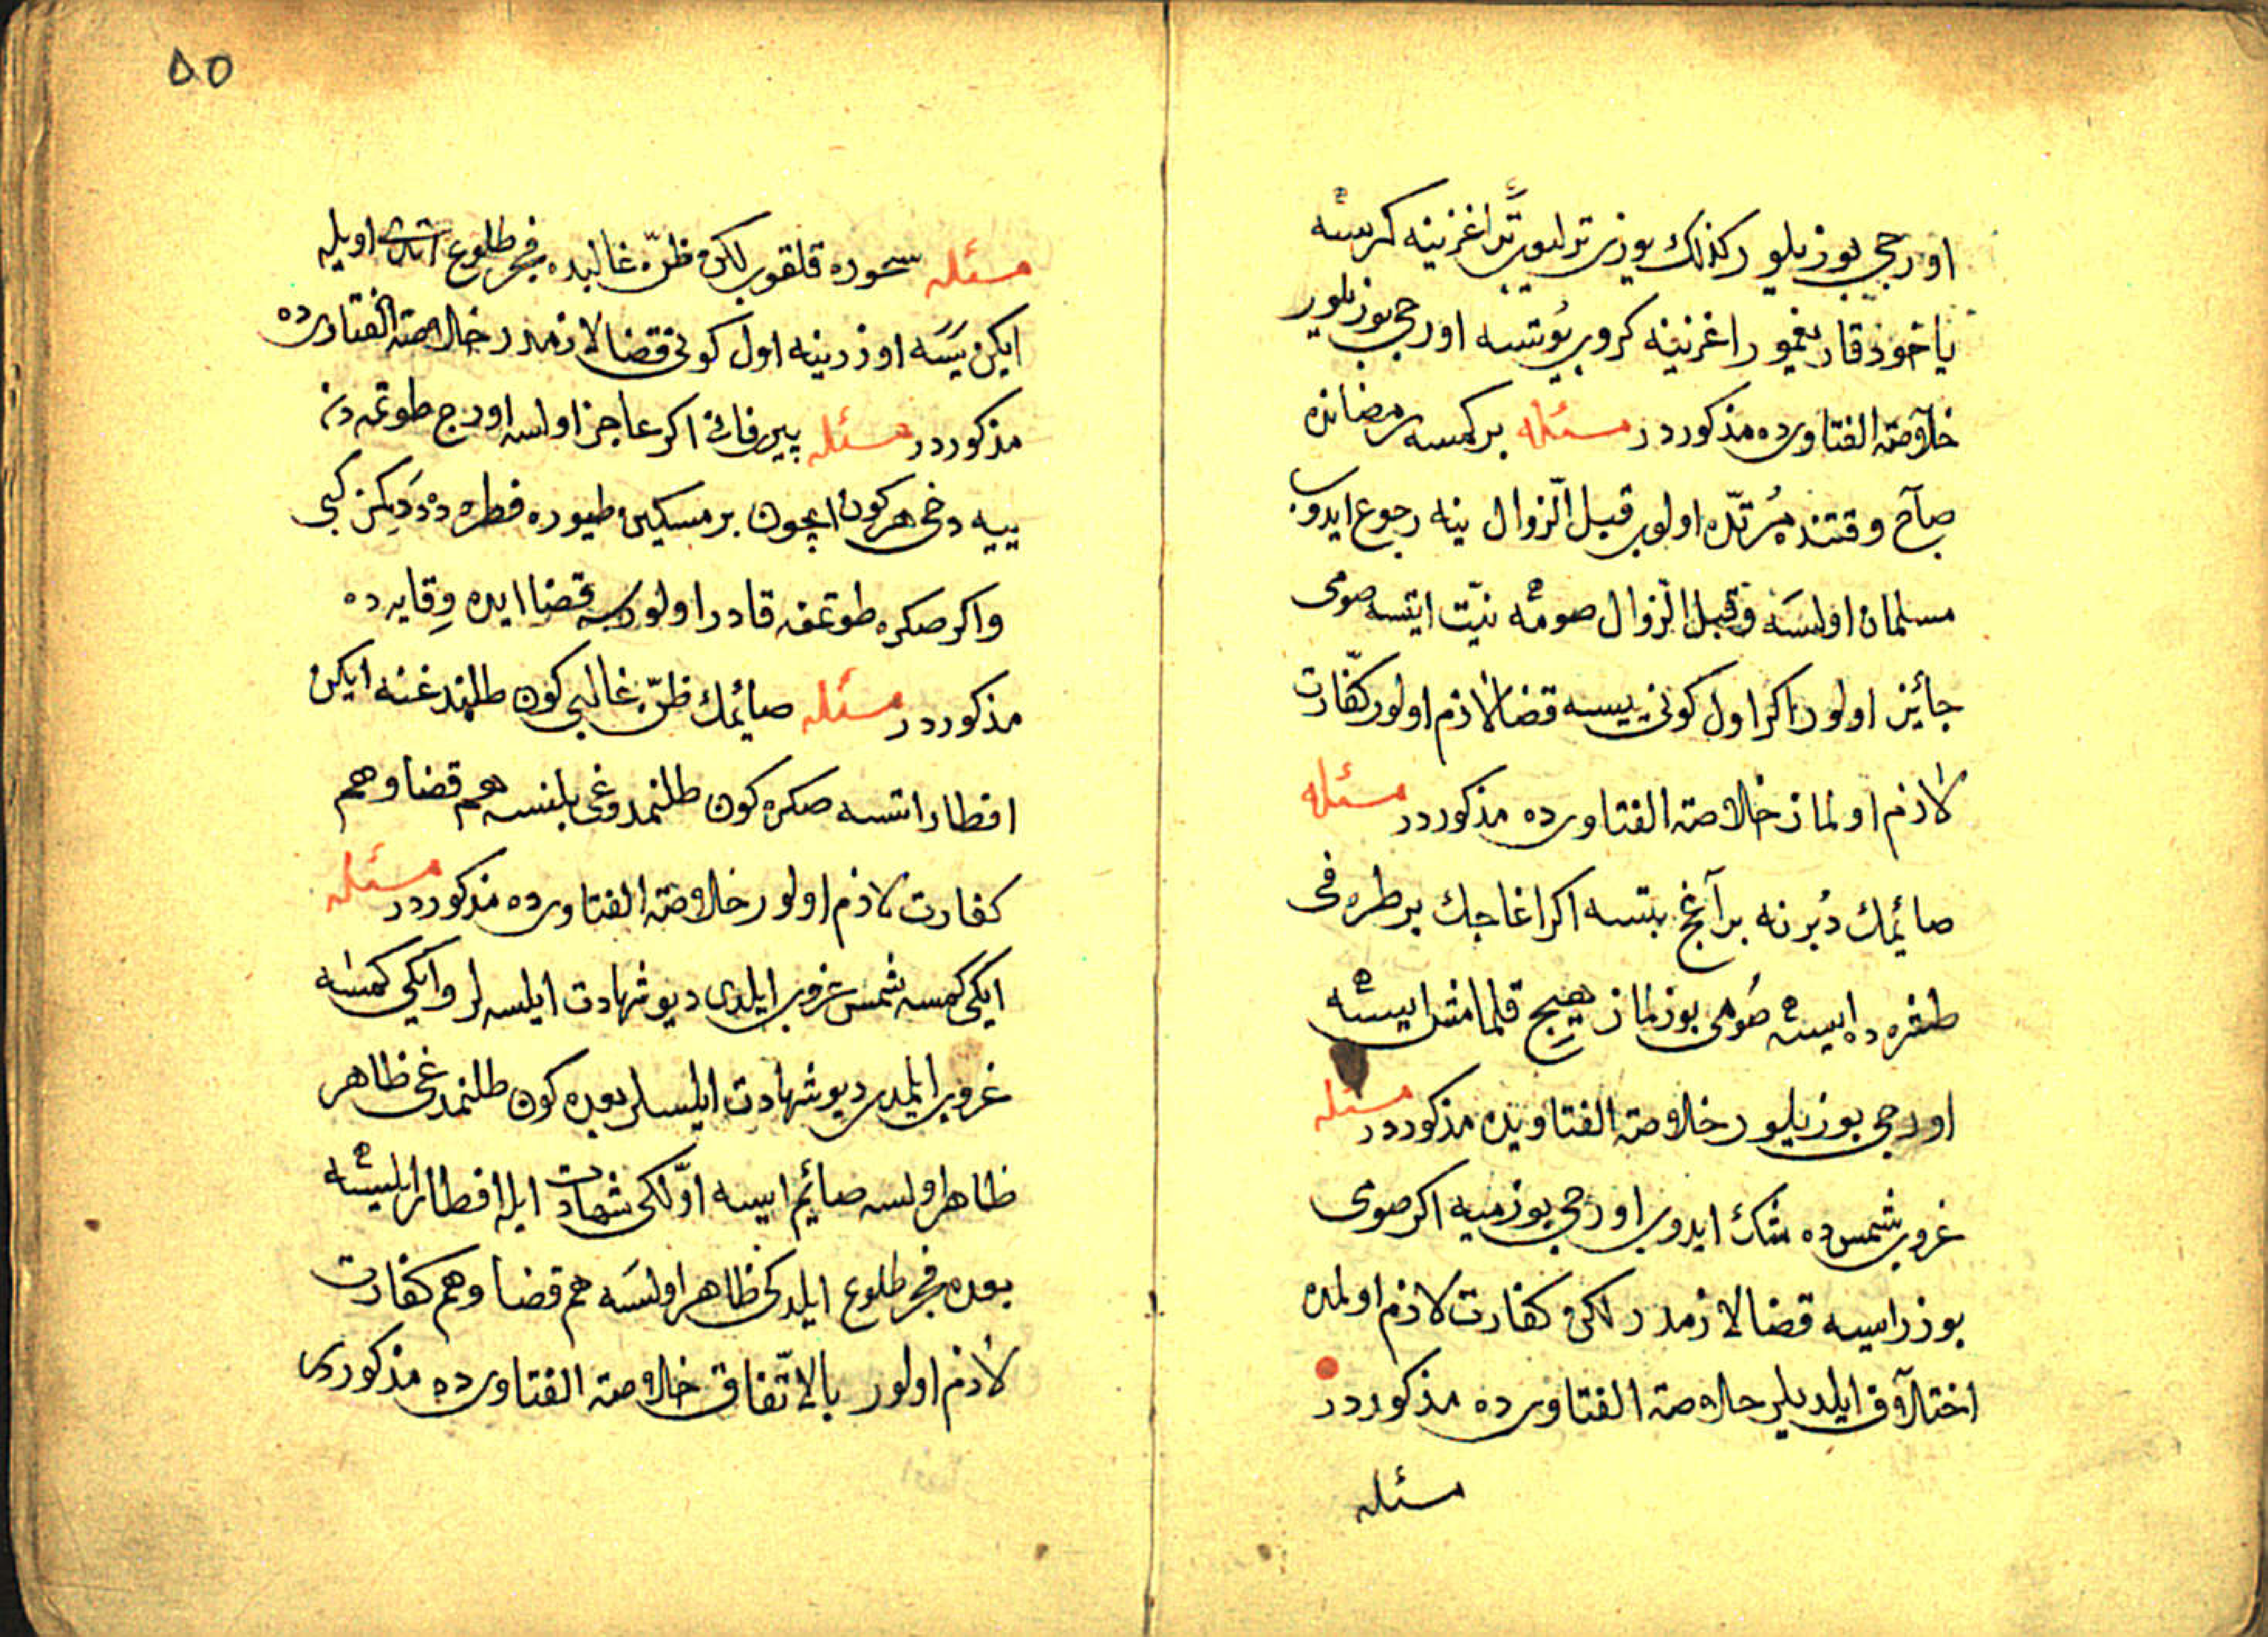 اورجی بوزیلور کذلك یوزی ترلیوب تر اغزینه کرسه
یاخود قار یغمور اغزینه کروب یوتسه اورجی بوزیلور
خلاصة الفتاویده مذکوردر مسئله بر کمسه رمضانده
صباح وقتنده مرتد اولوب قبل الزوال ینه رجوع ایدوب
مسلمان اولسه وقبل الزوال صومه نیّت ایتسه صومی
جائیز اولور اکر اول کونی ییسه قضا لازم اولور کفّارت
لازم اولماز خلاصة الفتاویده مذکوردر مسئله
صائیمك دبرنه بر آغج بتسه اکر اغاجك بر طرفی
طشره ده ایسه صومی بوزلماز هیچ قلمامش ایسه
اورجی بوزیلور خلاصة الفتاویده مذکوردر مسئله
غروب شمسده شك ایدوب اورجی بوزمیه اکر صومی
بوزر ایسه قضا لازمدر لکن کفارت لازم اولمده
اختلاف ایلدیلر خلاصة الفتاویده مذکوردر
مسئله
٥٥
مسئله سحوره قلقوب لکن ظنّ غالبده فجر طلوع اتدی اویله
ایکن یسه اوزرینه اول کونی قضا لازمدر خلاصة الفتاویده
مذکوردر مسئله پیر فانی اکر عاجز اولسه اورج طوتمدن
ییه دخی هر کون ایچون بر مسکین طیوره فطره ده دیکمز کبی
واکر صکره طوتمغه قادر اولورسه قضا ایده وقایه ده
مذکوردر مسئله صائیمك ظنّ غالبی کون طلندغنه ایکن
افطار اتسه صکره کون طلنمدوغی بلنسه هم قضا وهم
کفارت لازم اولور خلاصة الفتاویده مذکوردر مسئله
ایکی کمسه شمس غروب ایلدی دیو شهادت ایلسه لر وایکی کمسه
غروب ایلمدی دیو شهادت ایلسلر بعده کون طلنمدغی ظاهر
ظاهر اولسه صائیم ایسه اوّلکی شهادت ایله افطار ایلسه
بعده فجر طلوع ایلدکی ظاهر اولسه هم قضا وهم کفارت
لازم اولور بالاتّفاق خلاصة الفتاویده مذکوردی